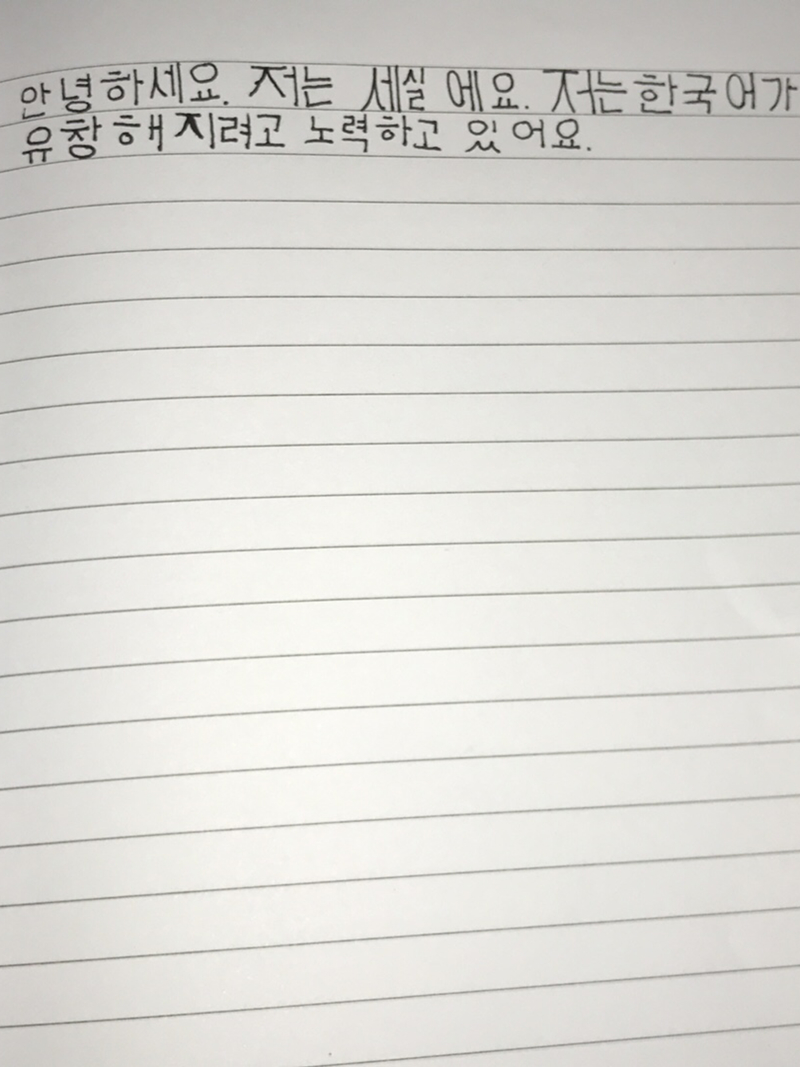 안녕하세요. 저는 세실 에요. 저는 한국어가
유창해지려고 노력하고 있어요.